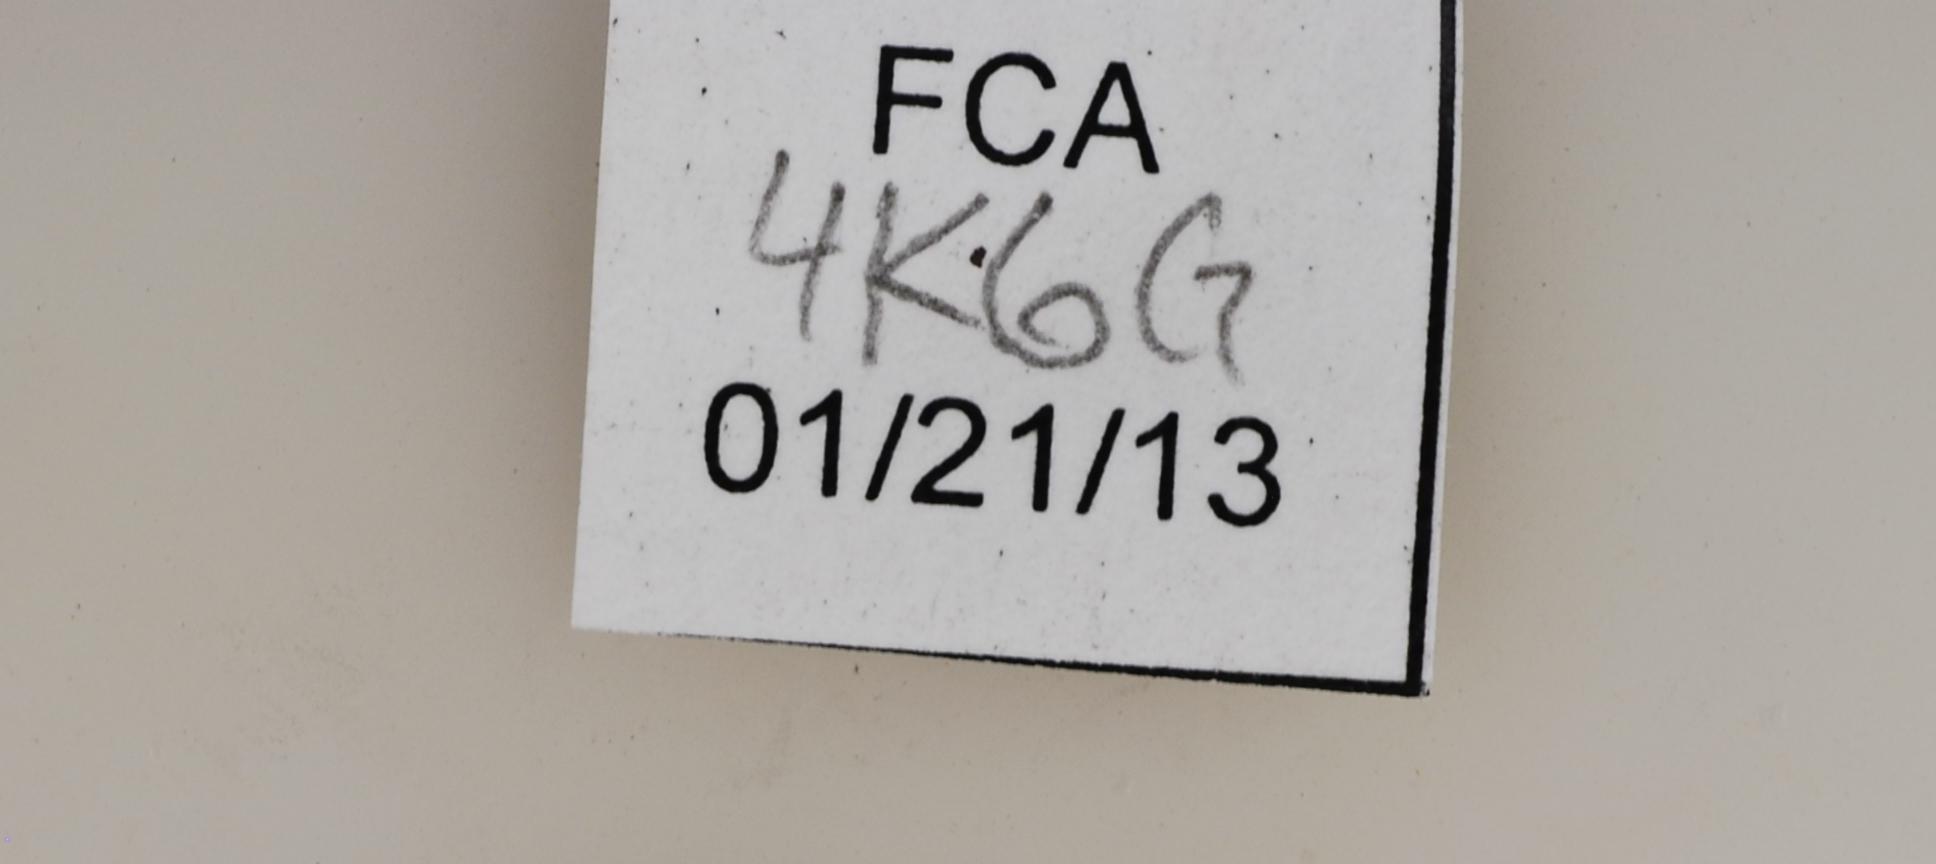 FCA
4K6G
01/21/13